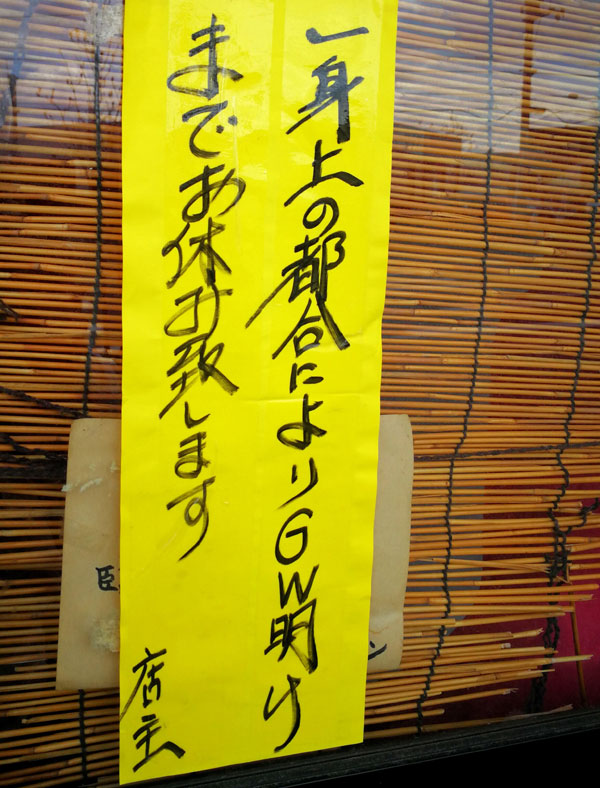 一身上の都合によりGW明け
までお休み致します
店主